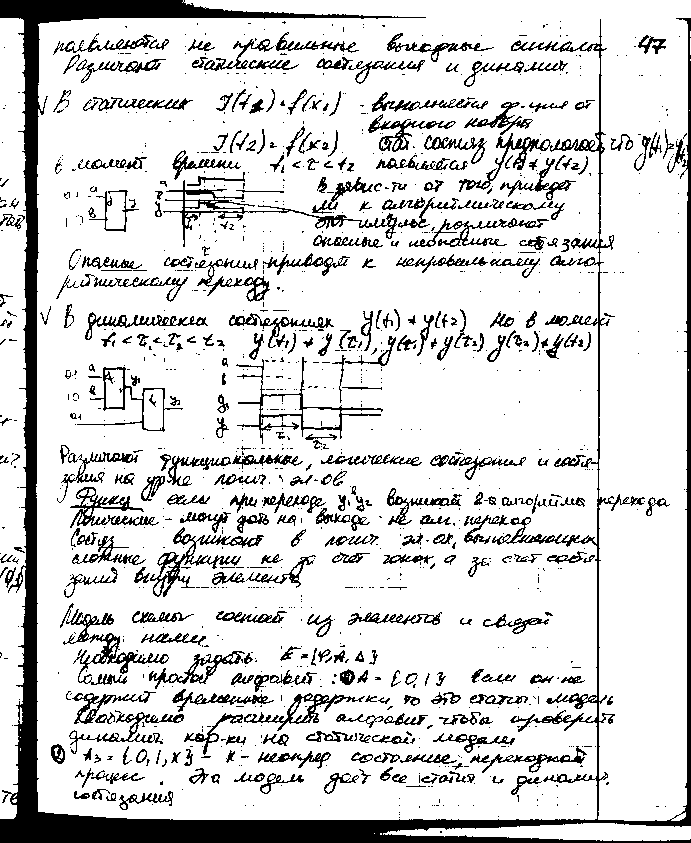 появляются не правильные выходные сигналы 47
Различают статические состязания и динамич.
√ В статических J(t2) = f(x1) - выполняется ф-ция от
входного набора
J(t2) = f(x2) состяз предпологает, что y(t1)=y(t2)
в момент времени t1 < τ < t2 появляется y(t) ≠ y(t2)
В завис-ти от того, приведет
ли к алгоритмическому
этот импульс, различают
опасные и неопасные состязания
0.1 a
1.0 в
y
a
в
y
t1 t2
τ
Опасные состязания приводят к неправельному алго-
ритмическому переходу.
√ В динамических состязаниях y(t1) ≠ y(t2) Но в момент
t1 < τ1 < τ2 < t2 y(t1) ≠ y(τ1), y(τ1) ≠ y(τ2) y(τ2) ≠ y(t2)
0.1 a
1.0 в
y1
y2
a
в
y1
y2
τ1 τ2
Различают функциональные, логические состязания и состя-
зания на ур-не логич. эл-ов.
Функц если при переходе y1 y2 возникают 2-а алгоритма перехода
Логические - могут дать на выходе не алг. переход
Состяз возникают в логич. эл-ах, выполняющих
сложные функции не за счет гонок, а за счет состя-
заний внутри элемента
Модель схемы состоит из элементов и связей
между ними
Необходимо задать E = {P, A, Δ}
Самый простой алфавит: A = {0,1} Если он не
содержит временные задержки, то это статич. модель
Необходимо расширить алфавит, чтобы проверить
динамич. хар-ки на статической модели
A3 = {0,1,x} - x - неопред состояние, переходной
процесс. Эта модель дает все статич и динамич.
состязания